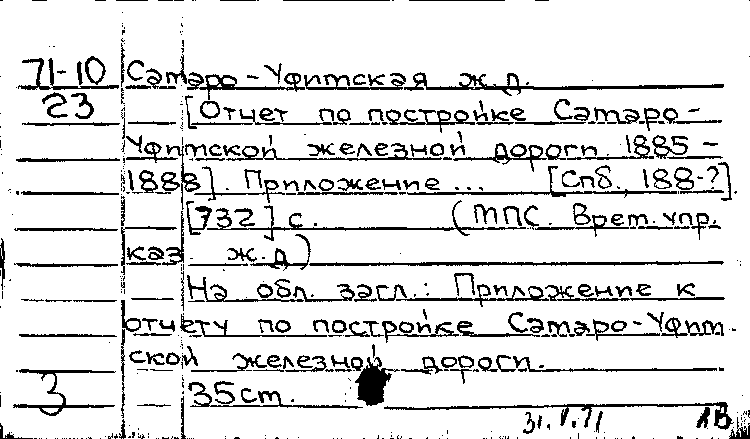 71-10 Самаро-Уфимская ж.д.
23 [Отчет по постройке Самаро-
Уфимской железной дороги 1885-
1888]. Приложение ... [Спб., 188-?].
[732] с. (МПС. Врем. упр.
каз. ж.д)
На обл. загл.: Приложение к
отчету по постройке Самаро-Уфим-
ской железной дороги.
3 35см.
31.V.71 АВ